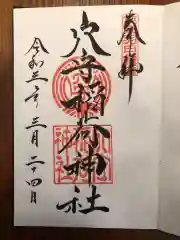 奉拝
穴守稲荷神社
令和三年三月二十四日